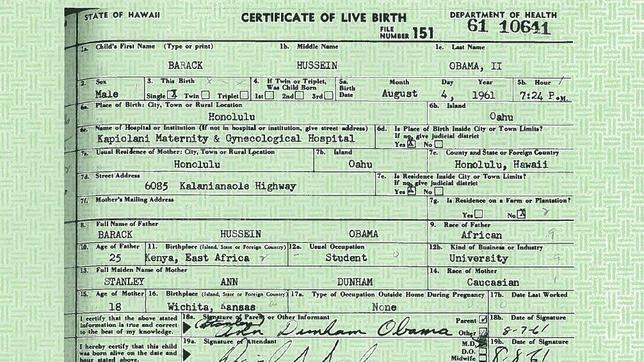 STATE OF HAWAII
CERTIFICATE OF LIVE BIRTH
DEPARTMENT OF HEALTH
FILE NUMBER 151
61 10641
1a. Child's First Name (Type or print)
1b. Middle Name
1c. Last Name
BARACK
HUSSEIN
OBAMA, II
2. Sex
Male
3. This Birth
Single X Twin Triplet
4. If Twin or Triplet, Was Child Born
1st 2nd 3rd
5a. Birth Date
Month Day Year
August 4, 1961
5b. Hour
7:24 P.M.
6a. Place of Birth: City, Town or Rural Location
Honolulu
6b. Island
Oahu
6c. Name of Hospital or Institution (If not in hospital or institution, give street address)
Kapiolani Maternity & Gynecological Hospital
6d. Is Place of Birth Inside City or Town Limits?
If no, give judicial district
Yes X No
7a. Usual Residence of Mother: City, Town or Rural Location
Honolulu
7b. Island
Oahu
7c. County and State or Foreign Country
Honolulu, Hawaii
7d. Street Address
6085 Kalanianaole Highway
7e. Is Residence Inside City or Town Limits?
If no, give judicial district
Yes X No
7f. Mother's Mailing Address
7g. Is Residence on a Farm or Plantation?
Yes No X
8. Full Name of Father
BARACK HUSSEIN OBAMA
9. Race of Father
African
10. Age of Father
25
11. Birthplace (Island, State or Foreign Country)
Kenya, East Africa
12a. Usual Occupation
Student
12b. Kind of Business or Industry
University
13. Full Maiden Name of Mother
STANLEY ANN DUNHAM
14. Race of Mother
Caucasian
15. Age of Mother
18
16. Birthplace (Island, State or Foreign Country)
Wichita, Kansas
17a. Type of Occupation Outside Home During Pregnancy
None
17b. Date Last Worked
I certify that the above stated information is true and correct to the best of my knowledge.
18a. Signature of Parent or Other Informant
(Stanley) Ann Dunham Obama
Parent
Other
18b. Date of Signature
8-7-61
I hereby certify that this child was born alive on the date and hour stated above.
19a. Signature of Attendant
M.D.
D.O.
Midwife
19b. Date of Signature